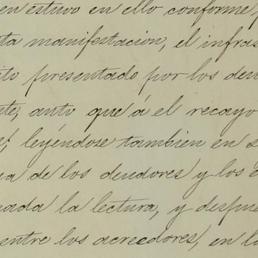 en estuvo en ello conforme,
ta manifestacion, el infras
ito presentado por los deu
te, auto que á el recayo
; leyéndose tambien en s
a de los deudores y los
ada la lectura, y despue
entre los acreedores, en la